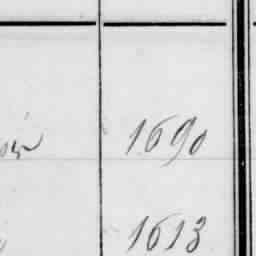 1690
1613